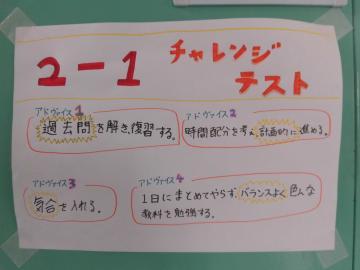 2-1 チャレンジ
テスト
アドヴァイス1
過去問を解き、復習する。
アドヴァイス2
時間配分を考え、計画的に進める。
アドヴァイス3
気合を入れる。
アドヴァイス4
1日にまとめてやらず、バランスよく色んな
教科を勉強する。